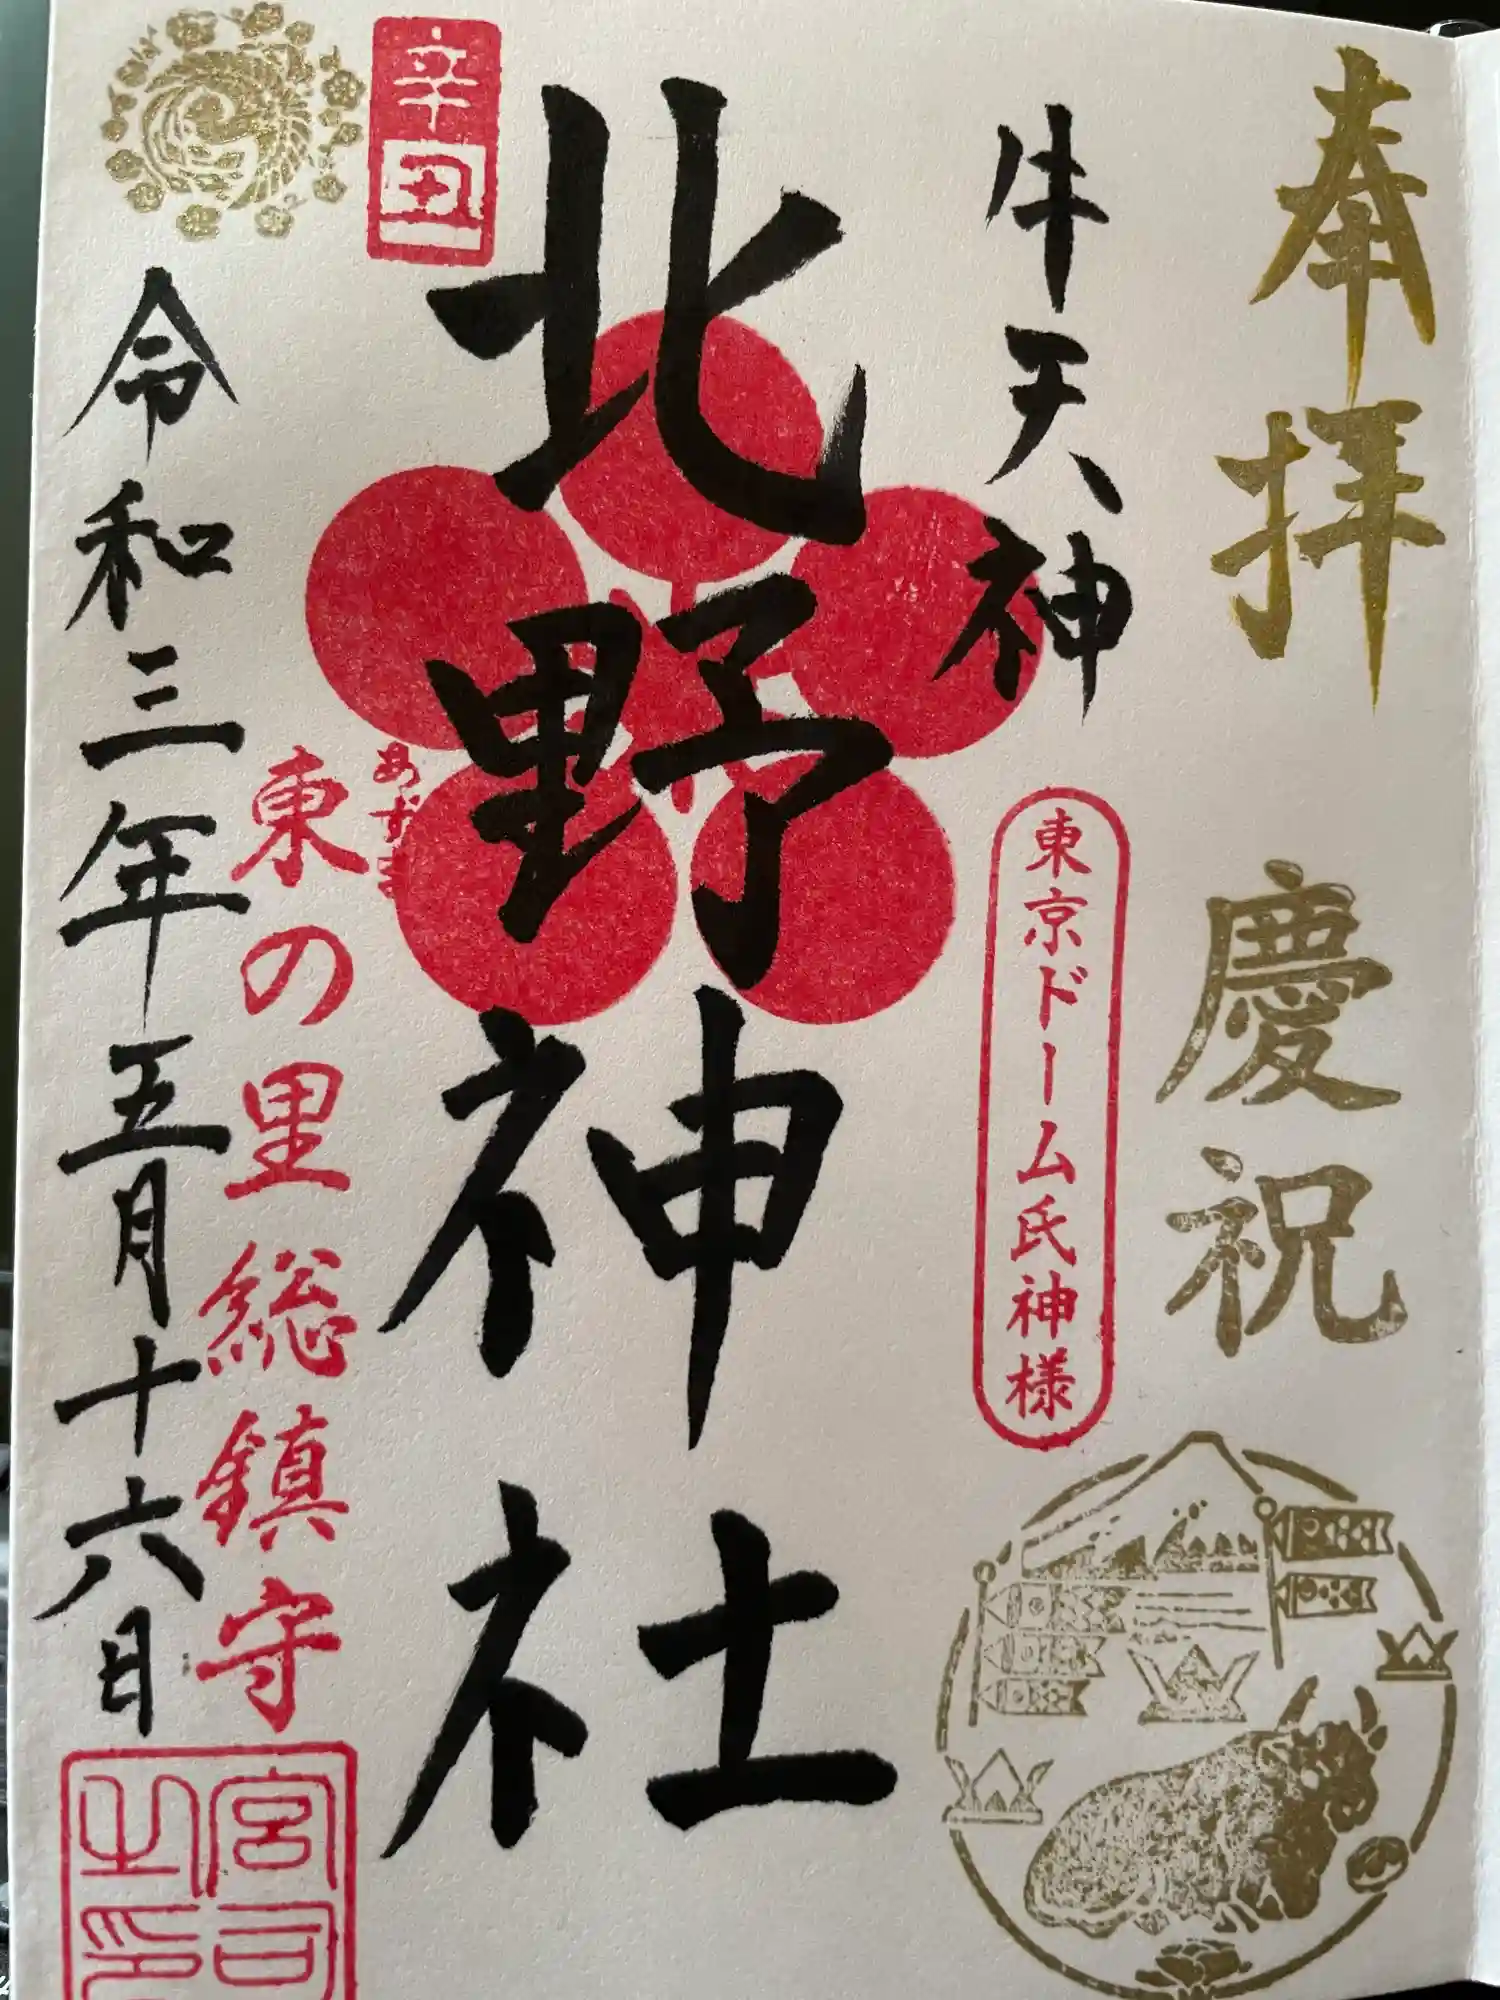 奉拝
慶祝
牛天神
東京ドーム氏神様
北野神社
辛丑
あずま
東の里総鎮守
令和三年五月十六日
宮司
之印